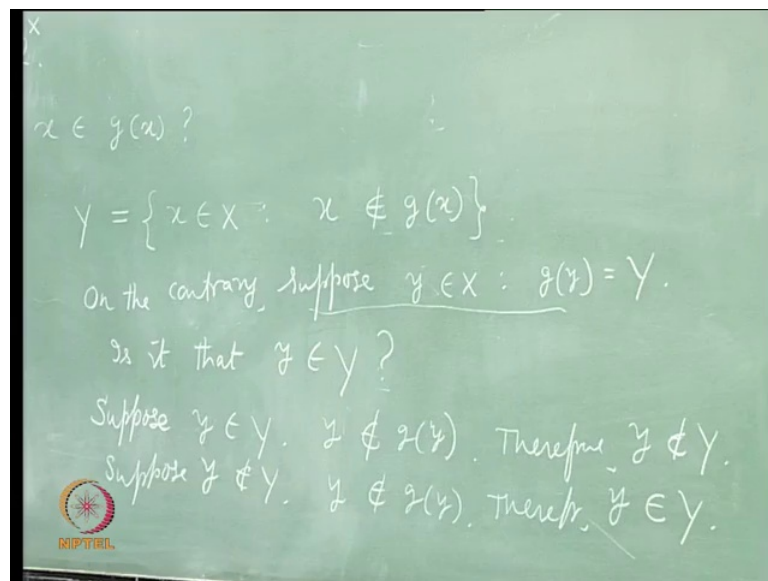 X
x ∈ g(x) ?
Y = { x ∈ X : x ∉ g(x) }.
On the contrary, suppose y ∈ X : g(y) = Y.
Is it that y ∈ Y ?
Suppose y ∈ Y. y ∉ g(y). Therefore, y ∉ Y.
Suppose y ∉ Y. y ∉ g(y). Therefr, y ∈ Y.
NPTEL